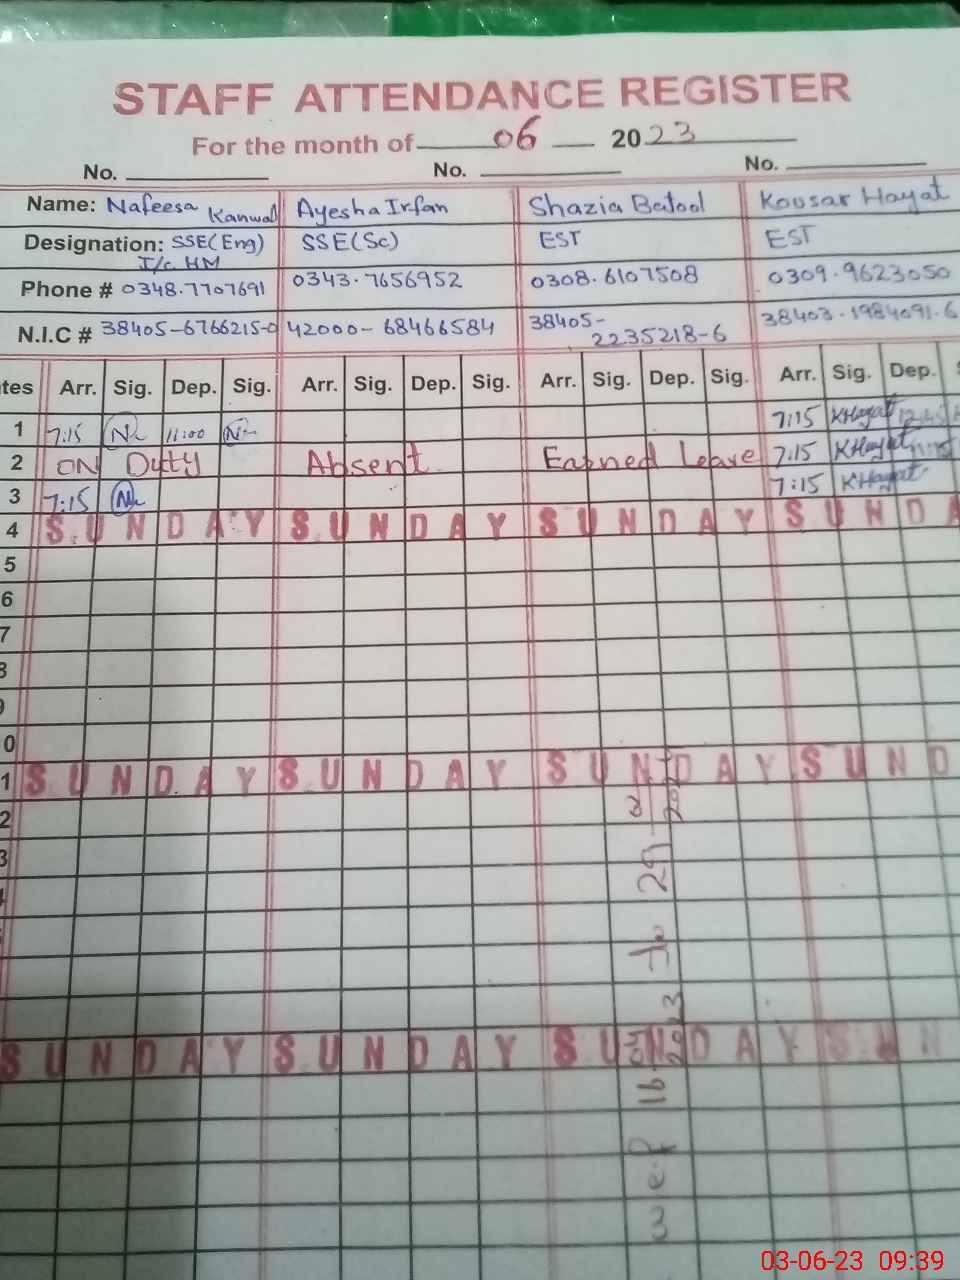 STAFF ATTENDANCE REGISTER
For the month of 06 2023
No. No. No.
Name: Nafeesa Kanwal Ayesha Irfan Shazia Batool Kousar Hayat
Designation: SSE(Eng) I/c HM SSE(Sc) EST EST
Phone # 0348.7707691 0343.7656952 0308.6107508 0309.9623050
N.I.C # 38405-6766215-0 42000-68466584 38405-2235218-6 38403.1984091.6
tes Arr. Sig. Dep. Sig. Arr. Sig. Dep. Sig. Arr. Sig. Dep. Sig. Arr. Sig. Dep.
1 7:15 11:00 7:15 KHayat 12:45
2 ON Duty Absent Earned Leave 7:15 KHayat
3 7:15 7:15 KHayat
4 SUNDAY SUNDAY SUNDAY SUNDA
5
6
7
8
9
0
1 SUNDAY SUNDAY SUNDAY SUND
2
3
4
SUNDAY SUNDAY SUNDAY SUN
w.e.f 16 2023 to 29
03-06-23 09:39